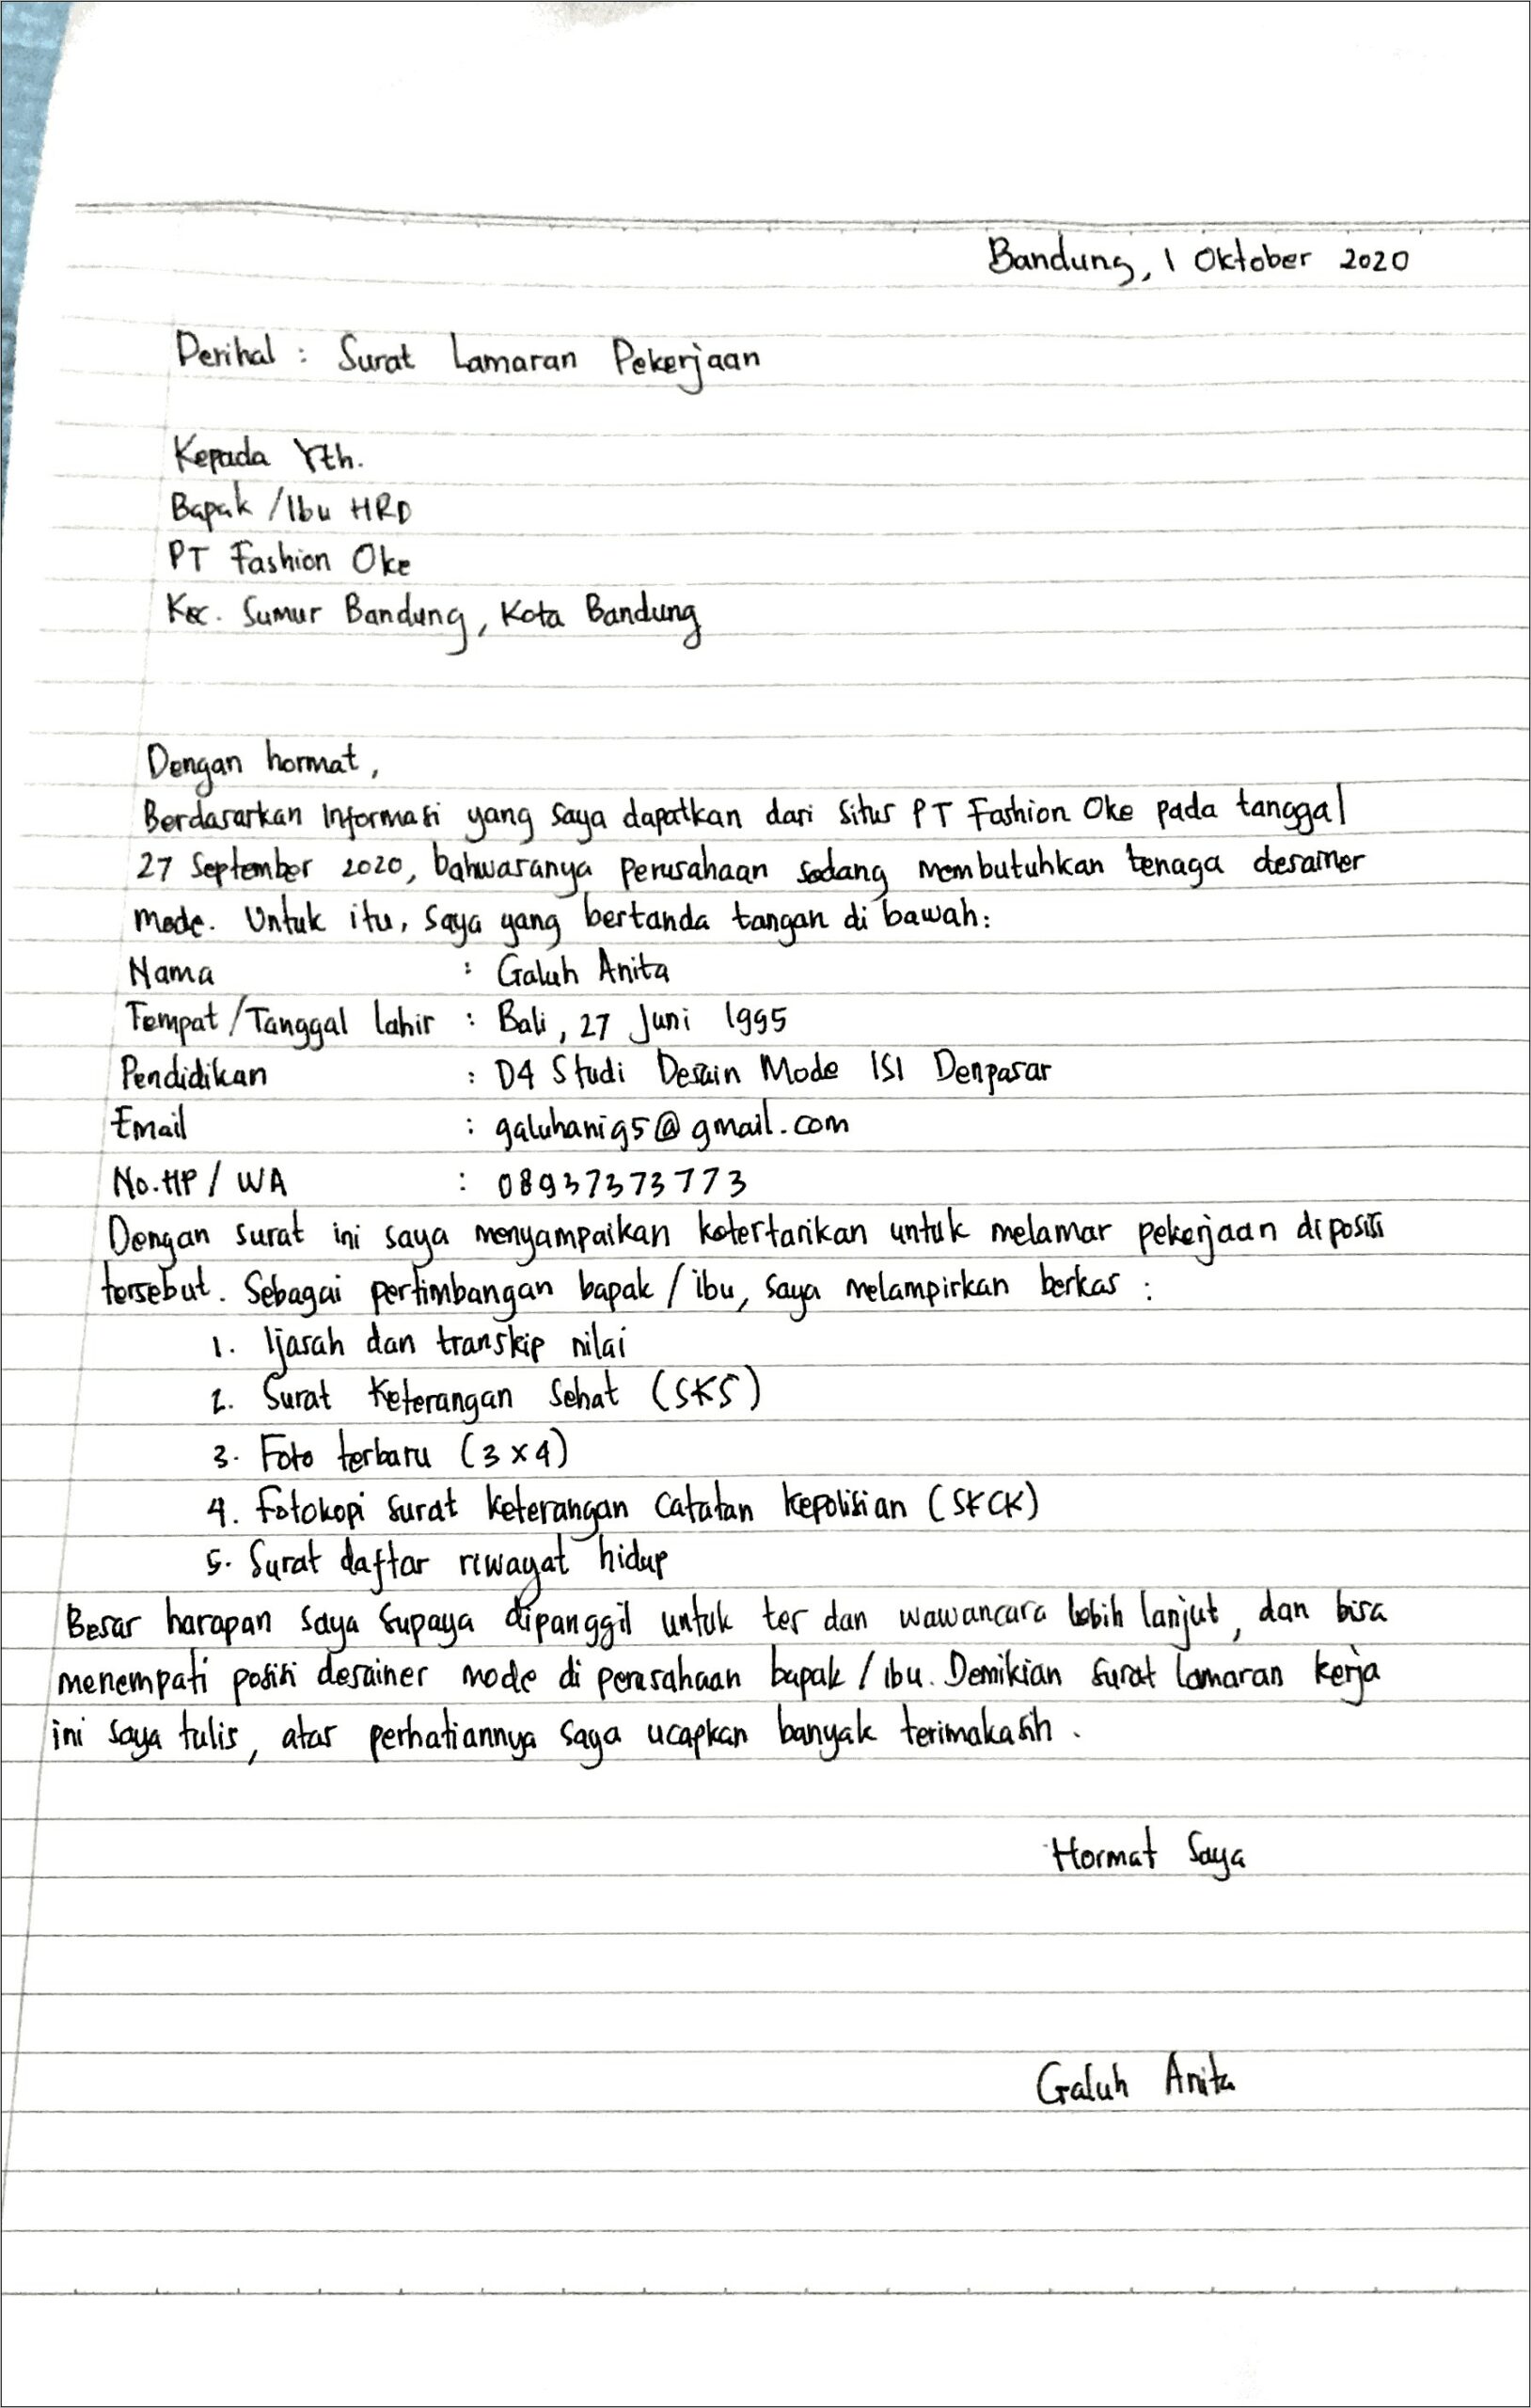 Bandung, 1 Oktober 2020
Perihal : Surat Lamaran Pekerjaan
Kepada Yth.
Bapak /Ibu HRD
PT Fashion Oke
Kec. Sumur Bandung, Kota Bandung
Dengan hormat,
Berdasarkan Informasi yang saya dapatkan dari situs PT Fashion Oke pada tanggal
27 September 2020, bahwasanya perusahaan sedang membutuhkan tenaga desainer
mode. Untuk itu, saya yang bertanda tangan di bawah:
Nama : Galuh Anita
Tempat/Tanggal lahir : Bali, 27 Juni 1995
Pendidikan : D4 Studi Desain Mode ISI Denpasar
Email : galuhani95@gmail.com
No.HP / WA : 08937373773
Dengan surat ini saya menyampaikan ketertarikan untuk melamar pekerjaan diposisi
tersebut. Sebagai pertimbangan bapak / ibu, saya melampirkan berkas :
1. Ijasah dan transkip nilai
2. Surat Keterangan Sehat (SKS)
3. Foto terbaru (3 x 4)
4. Fotokopi surat keterangan catatan kepolisian (SKCK)
5. Surat daftar riwayat hidup
Besar harapan saya supaya dipanggil untuk tes dan wawancara lebih lanjut, dan bisa
menempati posisi desainer mode di perusahaan bapak / ibu. Demikian surat lamaran kerja
ini saya tulis, atas perhatiannya saya ucapkan banyak terimakasih.
Hormat Saya
Galuh Anita